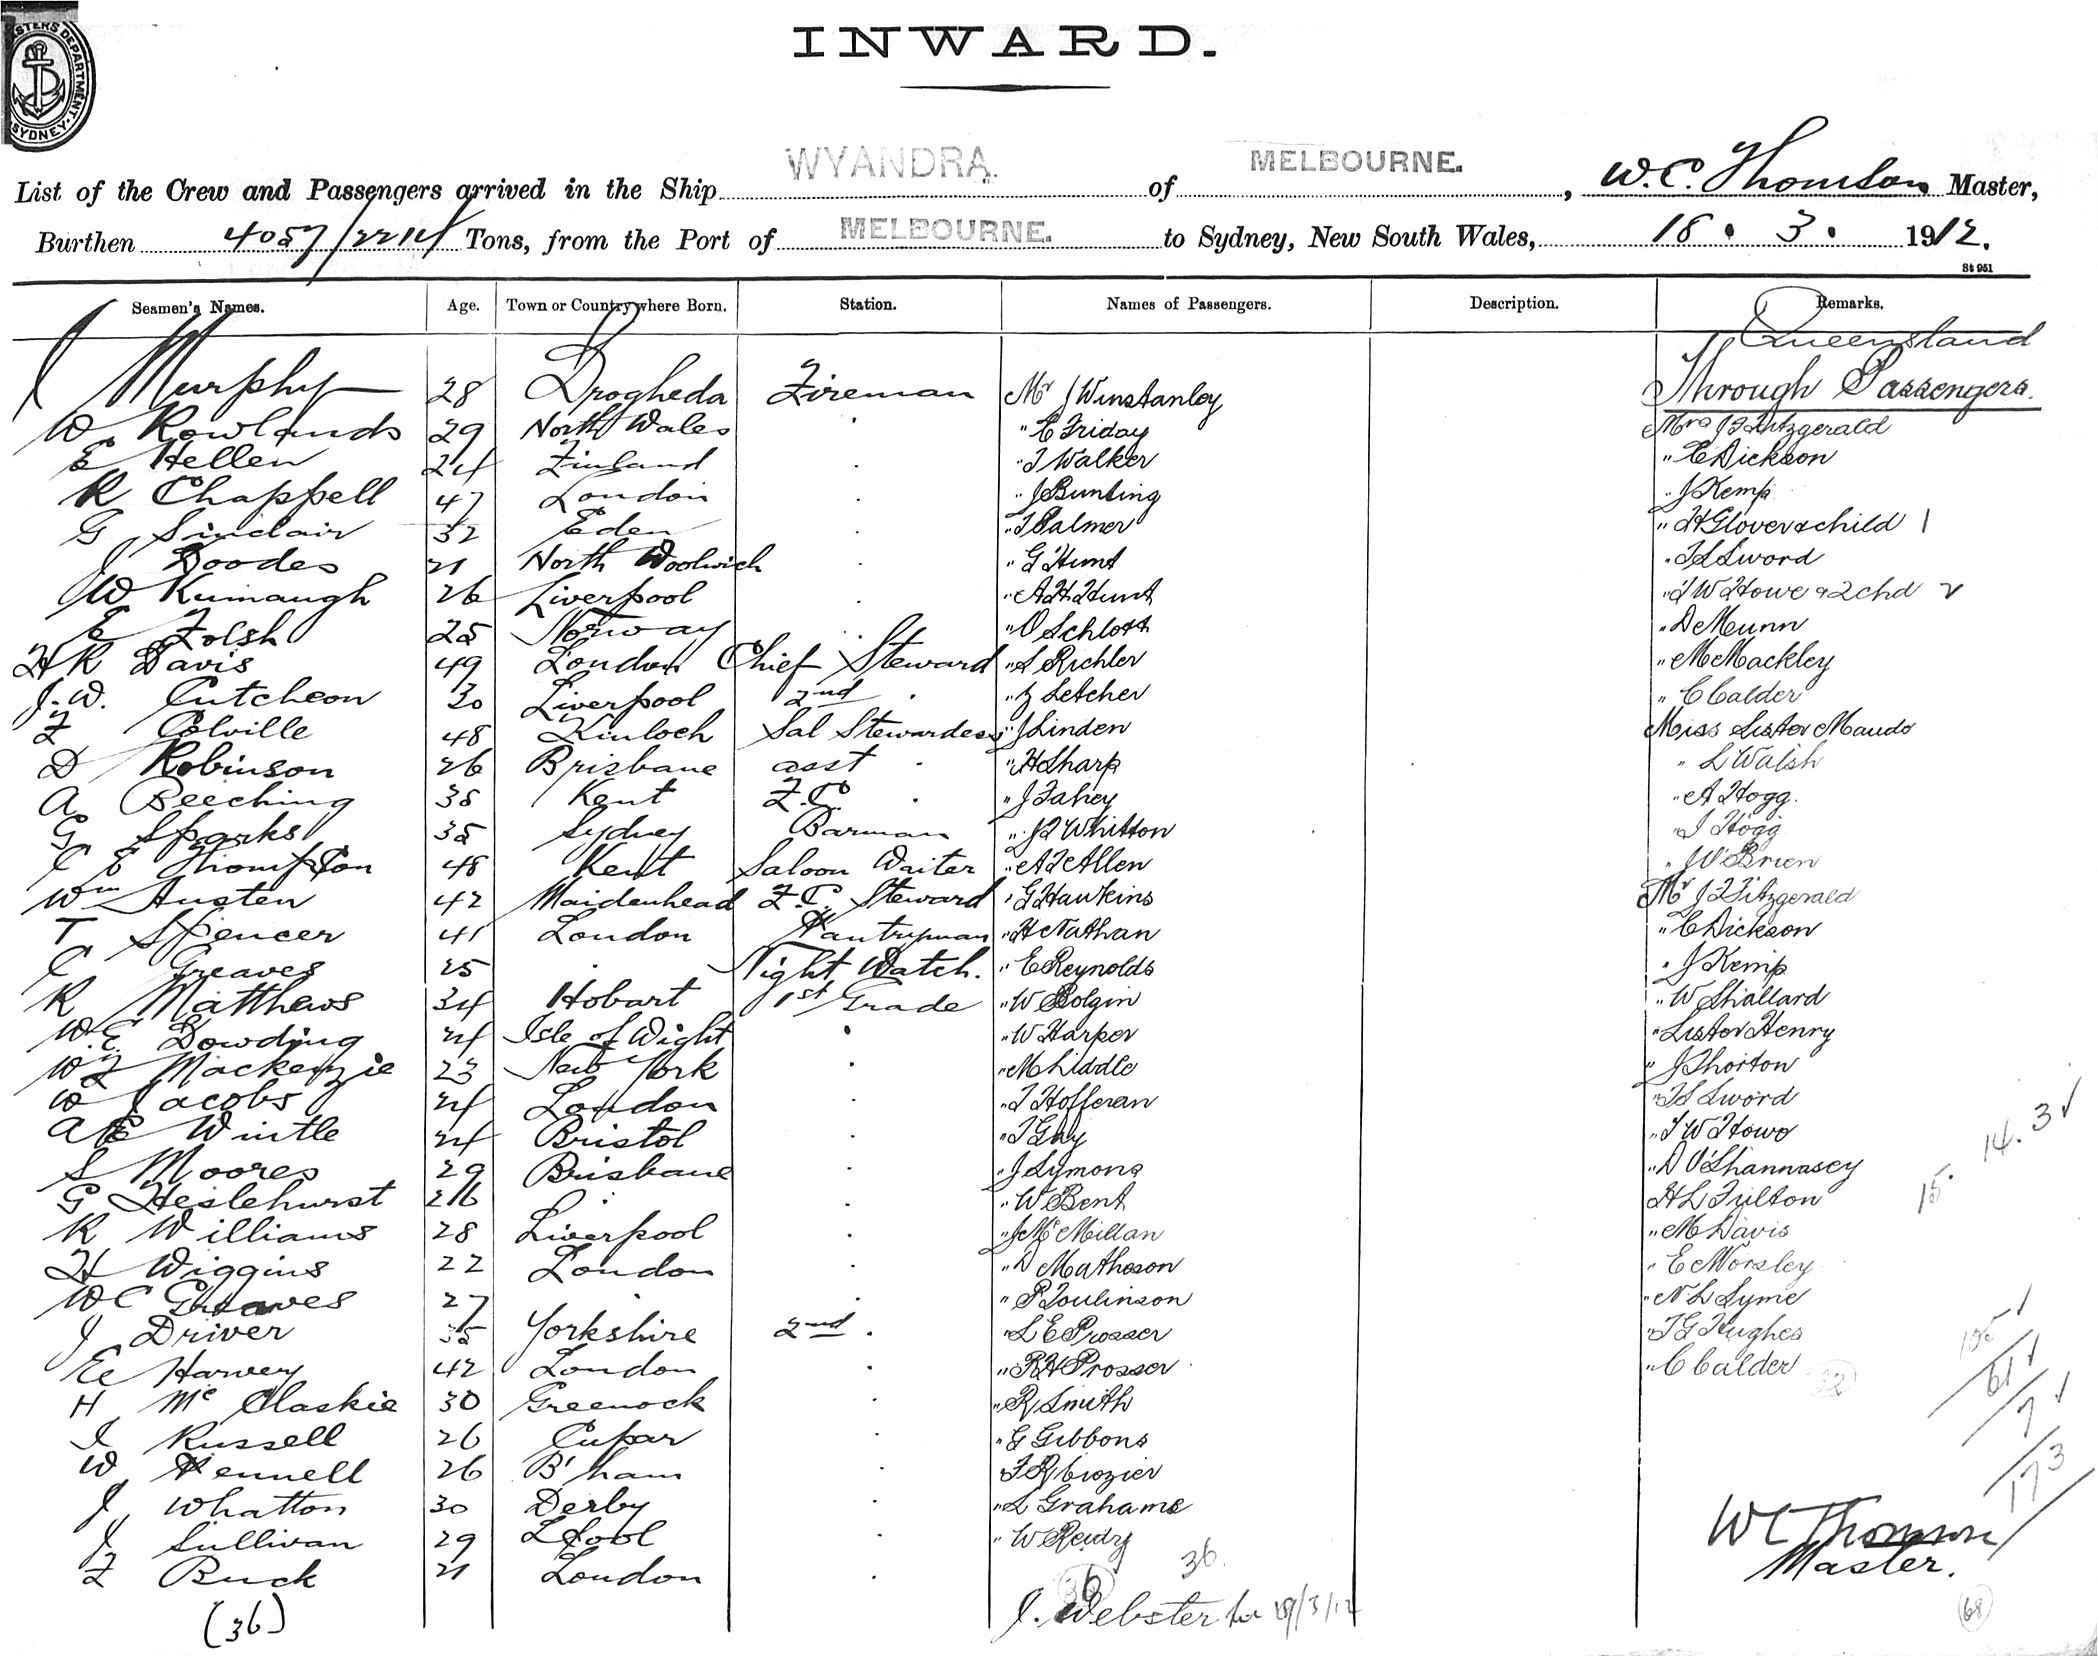 INWARD.
CUSTOMS DEPARTMENT. SYDNEY.
List of the Crew and Passengers arrived in the Ship WYANDRA. of MELBOURNE. , W.C. Thomson Master,
Burthen 4057/2214 Tons, from the Port of MELBOURNE. to Sydney, New South Wales, 18 . 3 . 1912.
St 951
Seamen's Names. Age. Town or Country where Born. Station. Names of Passengers. Description. Remarks.
Queensland
J Murphy 28 Drogheda Fireman Mr J Winstanley Through Passengers.
W Rowlands 29 North Wales " " E Friday Mrs J Fitzgerald
E Hellen 24 Finland " " T Walker " C Dickson
R Chappell 47 London " " J Bunting " J Kemp
G Sinclair 32 Eden " " T Palmer " H Glover & child 1
J Doodes 21 North Woolwich " " G Hunt " T S Sword
W Kumaugh 26 Liverpool " " A H Hunt " T W Howe & 2 chd 2
E Folsh 25 Norway " " O Schlott " D Munn
H R Davis 49 London Chief Steward " S Richler " M Mackley
J. W. Cutcheon 30 Liverpool 2nd " " Z Letcher " C Calder
F Colville 48 Kinloch Sal Stewardess " J Linden Miss Sister Maude
D Robinson 26 Brisbane asst " " H Sharp " L Walsh
A Beeching 38 Kent F.C. " " J Fahey " A Hogg.
G Sparks 35 Sydney Barman " J Q Whitton " J Hogg
C E Thompson 48 Kent Saloon Waiter " A F Allen " W O'Brien
Wm Austen 42 Maidenhead F.C. Steward " G Hawkins Mr J Fitzgerald
T Spencer 41 London Pantryman " H Nathan " C Dickson
C Greaves 25 " Night Watch. " E Reynolds " J Kemp
R Matthews 34 Hobart 1st Grade " W Bolgin " W Shallard
W. E. Dowding 24 Isle of Wight " " W Harper " Lister Henry
W F Mackenzie 23 New York " " M Liddle " J Shorton
W Jacobs 24 London " " T Hofferan " T S Sword
A E Wintle 24 Bristol " " T Gay " T W Howe 14. 3
S Moores 29 Brisbane " " J Symons " D O'Shannasey
G Heslehurst 26 " " " W Bent H L Fulton 15.
R Williams 28 Liverpool " " J McMillan " M Davis
H Wiggins 22 London " " D Matheson " E Worsley
W C Greaves 27 " " " P Toulinson " N L Syme
J Driver 35 Yorkshire 2nd " " L E Prosser " T G Hughes 105
Ee Harvey 42 London " " R H Prosser " C Calder 32 61
H McClaskie 30 Greenock " " R Smith 7
I Russell 26 Cupar " " G Gibbons
W Fennell 26 B'ham " " F R Crozier 173
J Whatton 30 Derby " " L Grahame
J Sullivan 29 L'pool " " W Reidy W C Thomson
F Buck 21 London " 36 36. Master.
(36) J. Webster 19/3/12 (68)